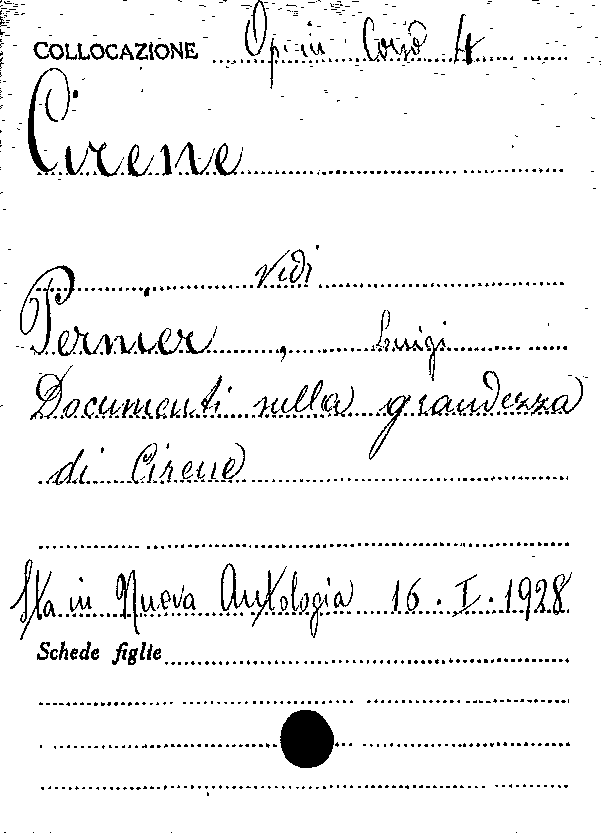 COLLOCAZIONE Corso 4
Cirene
vedi
Pernier, Luigi
Documenti sulla grandezza
di Cirene
Sta in Nuova Antologia 16. I. 1928
Schede figlie